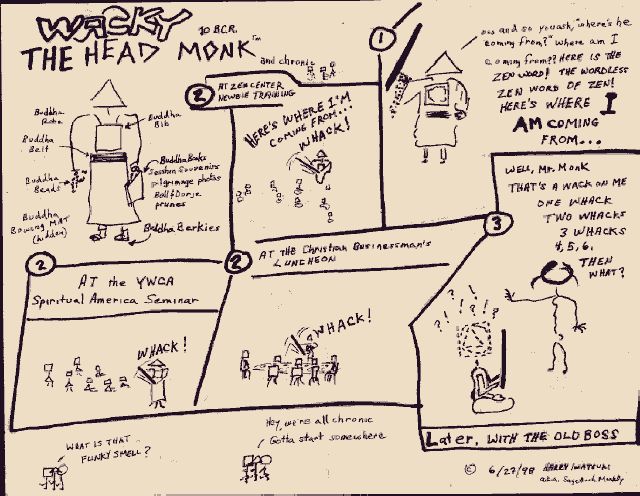 WACKY
THE HEAD MONK
and chronic
Buddha
Robe
Buddha
Belt
Buddha
Beads
Buddha
Bowing MAT
(hidden)
Buddha
Bib
Buddha Books
Session Souvenirs
pilgrimage photos
Bell & Dorje
prunes
Buddha Berkies
1
and so you ask, "where's he
coming from?" where am I
coming from?? HERE IS THE
ZEN WORD! THE WORDLESS
ZEN WORD OF ZEN!
HERE'S WHERE I
AM COMING
FROM...
2
AT ZEN CENTER
NEWBIE TRAINING
HERE'S WHERE I'M
COMING FROM...
WHACK!
2
AT the YWCA
Spiritual America Seminar
WHACK!
2
AT THE Christian Businessman's
LUNCHEON
WHACK!
3
WELL, Mr. MONK
THAT'S A WACK ON ME
ONE WHACK
TWO WHACKS
3 WHACKS
4, 5, 6,
THEN
WHAT?
? ! ? ! ? !
Later, WITH THE OLD BOSS
WHAT IS THAT
FUNKY SMELL?
Hey, we're all chronic
Gotta start somewhere
© 6/27/98
a.k.a.